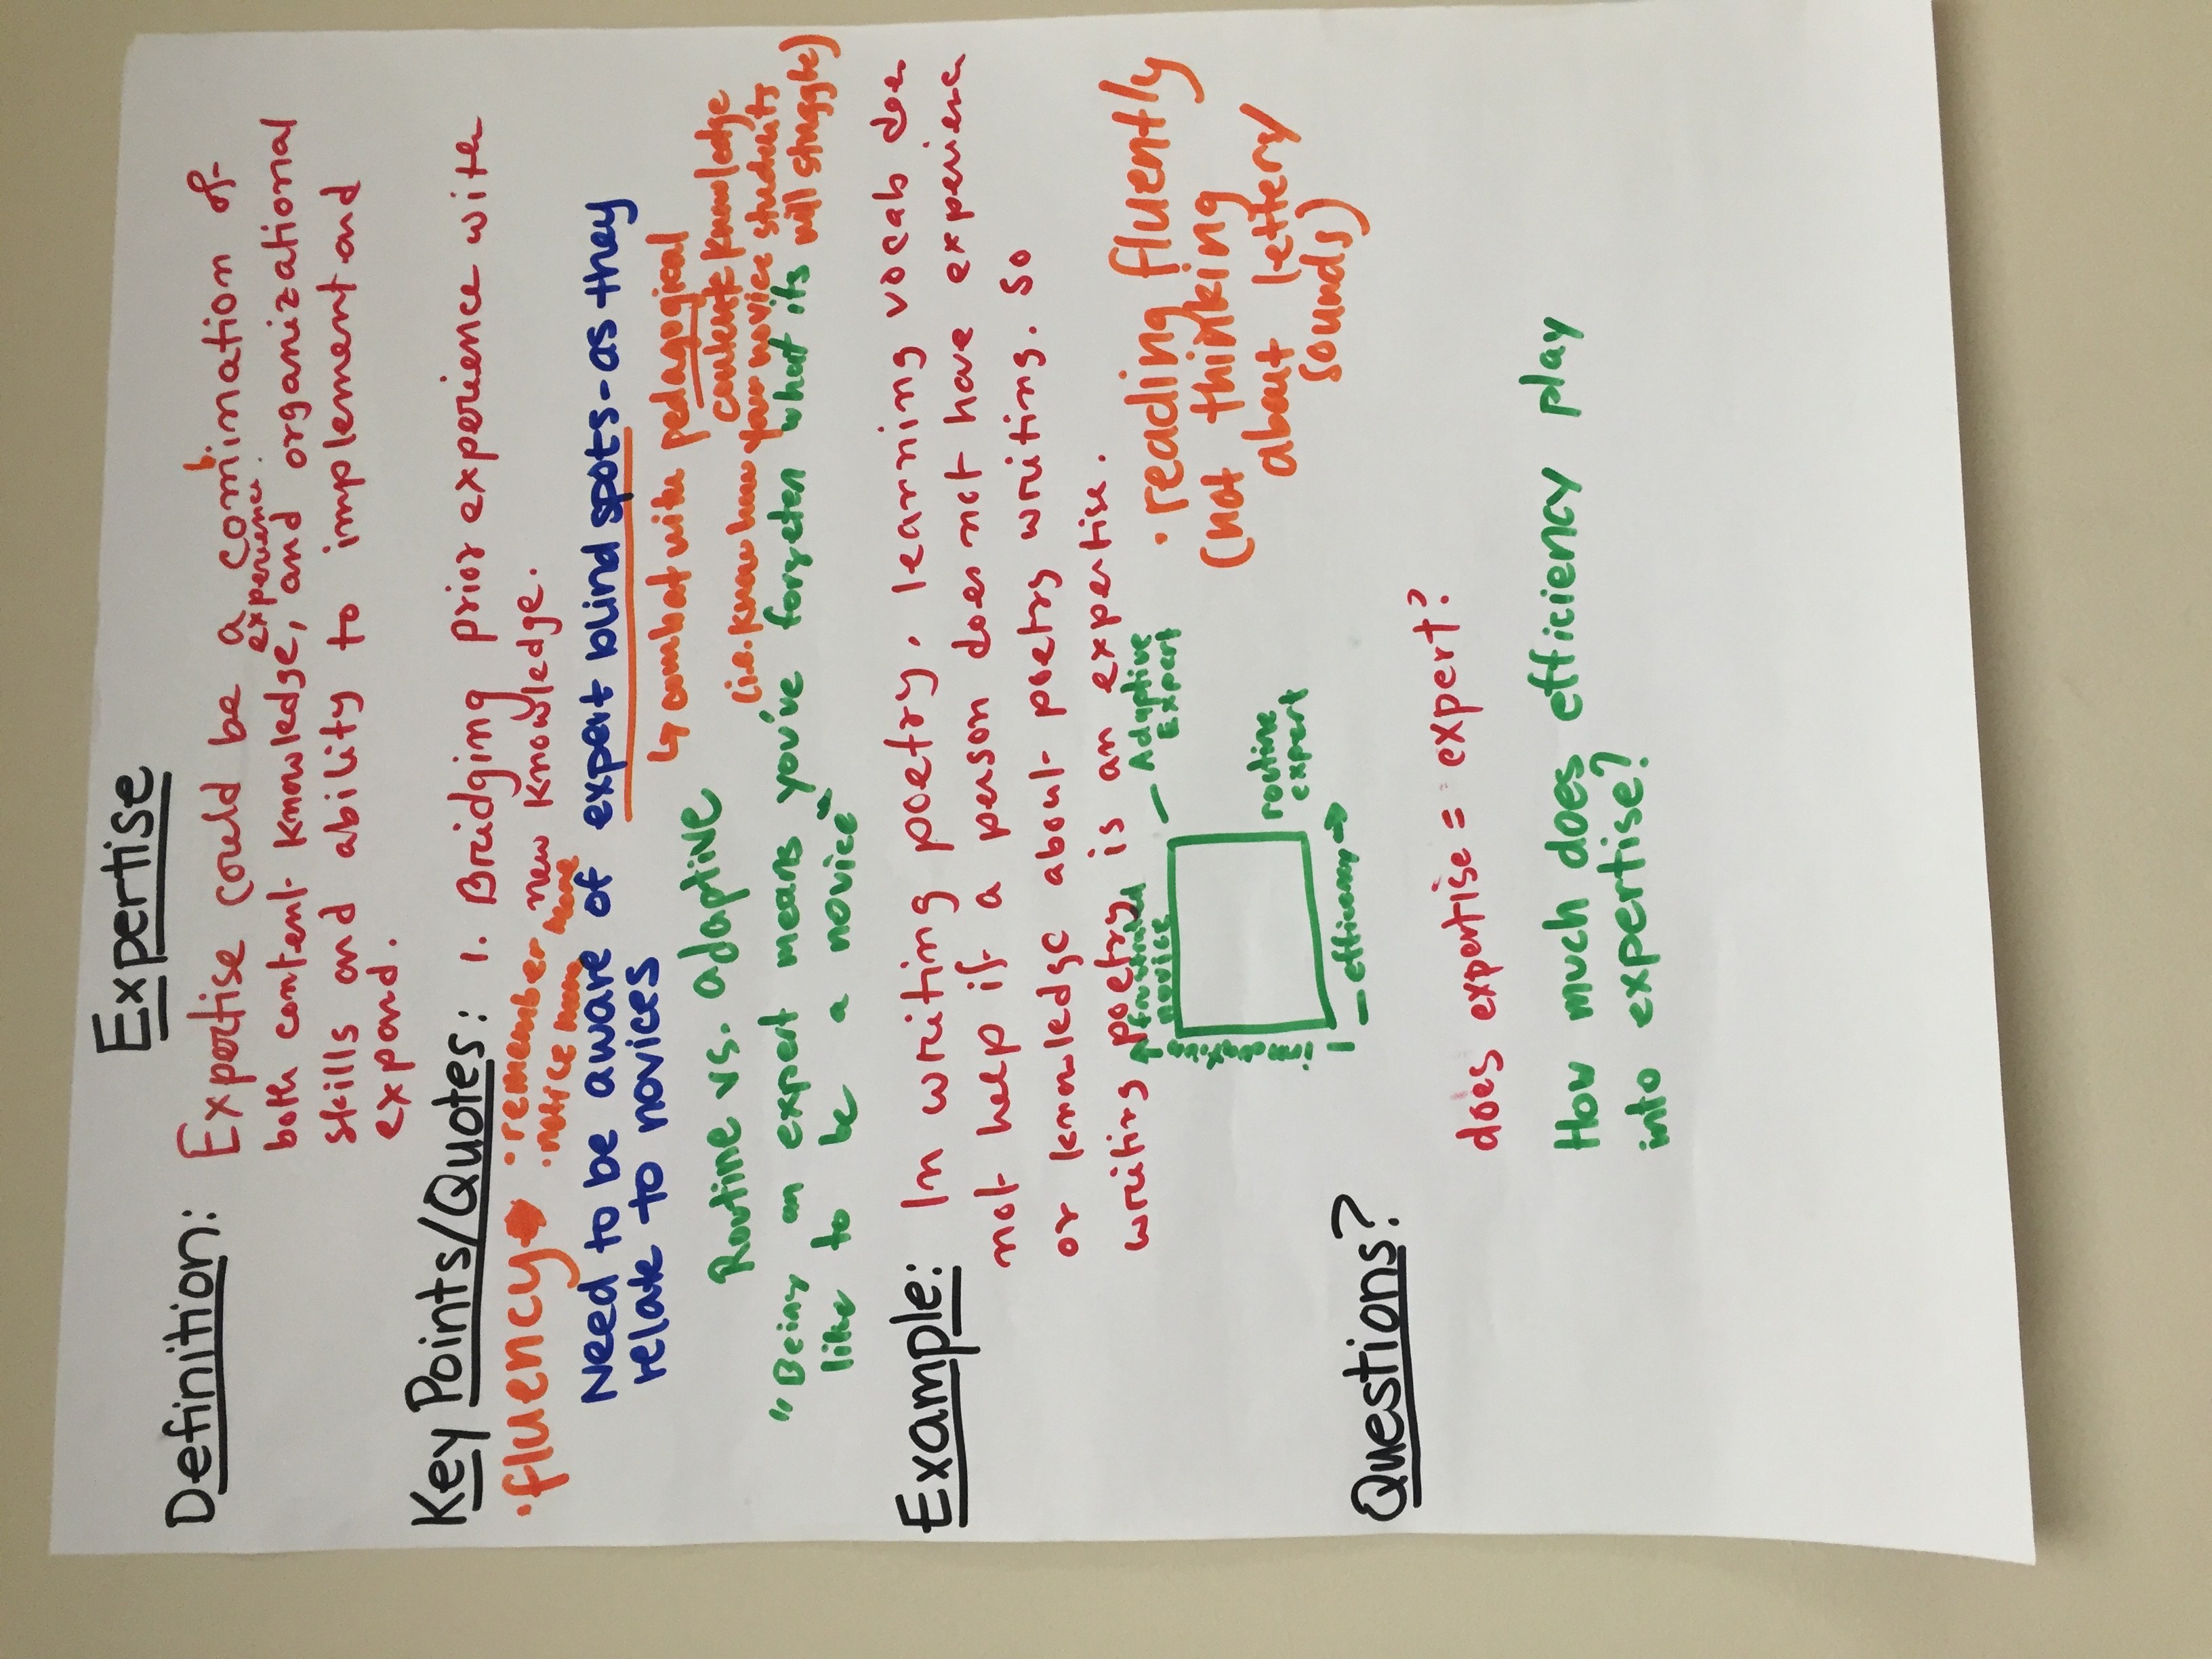 Expertise
Definition: Expertise could be a comination of
b
experience.
both content knowledge, and organizational
skills and ability to implement and
expand.
Key Points/Quotes: 1. Bridging prior experience with
new knowledge.
·fluency
·remember more
·notice more
Need to be aware of expert blind spots - as they
relate to novices
↳ combat with pedagogical
content knowledge
(i.e. know how your novice students
will struggle)
Routine vs. adaptive
"Being an expert means you've forgeten what its
like to be a novice"
Example: In writing poetry, learning vocab does
not help if a person does not have experience
or knowledge about poetry writing. So
writing poetry is an expertise.
· reading fluently
(not thinking
about letter
sounds)
frustrated
novice
Adaptive
Expert
innovation
routine
expert
efficiency
Questions?
does expertise = expert?
How much does efficiency play
into expertise?